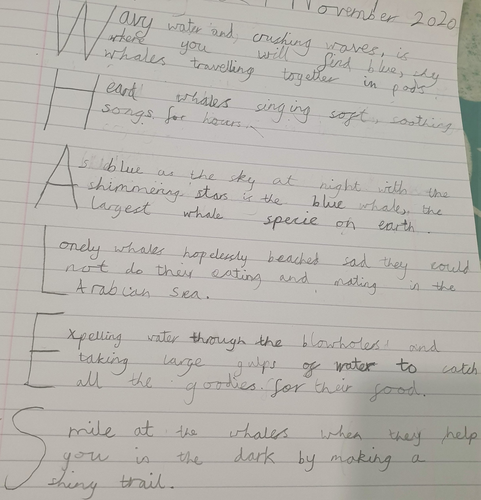 November 2020
Wavy water and crushing waves, is
where you will find blue, shy
whales travelling together in pods.
Heard whales singing soft, soothing
songs for hours.
As blue as the sky at night with the
shimmering stars is the blue whale, the
largest whale specie on earth.
Lonely whales hopelessly beached sad they could
not do their eating and mating in the
Arabian Sea.
Expelling water through the blowholes and
taking large gulps of water to catch
all the goodies for their food.
Smile at the whales when they help
you in the dark by making a
shiny trail.